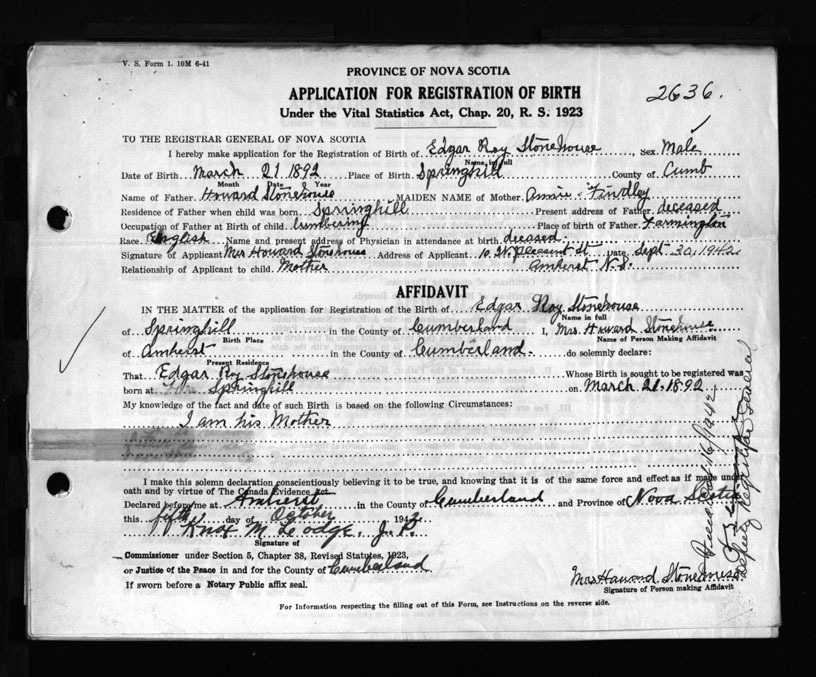 V. S. Form 1. 10M 6-41
PROVINCE OF NOVA SCOTIA
APPLICATION FOR REGISTRATION OF BIRTH
2636.
Under the Vital Statistics Act, Chap. 20, R. S. 1923
TO THE REGISTRAR GENERAL OF NOVA SCOTIA
I hereby make application for the Registration of Birth of Edgar Roy Stonehouse Sex Male
Name in full
Date of Birth March 21 1892 Place of Birth Springhill County of Cumb
Month Date Year
Name of Father Howard Stonehouse MAIDEN NAME of Mother Annie Findley
Residence of Father when child was born Springhill Present address of Father deceased
Occupation of Father at Birth of child lumbering Place of birth of Father Farmington
Race English Name and present address of Physician in attendance at birth deceased.
Signature of Applicant Mrs Howard Stonehouse Address of Applicant Pleasant St Date Sept 30, 1942
Relationship of Applicant to child Mother Amherst N.S.
AFFIDAVIT
IN THE MATTER of the application for Registration of the Birth of Edgar Roy Stonehouse
Name in full
of Springhill in the County of Cumberland I, Mrs. Howard Stonehouse
Birth Place Name of Person Making Affidavit
of Amherst in the County of Cumberland. do solemnly declare:
Present Residence
That Edgar Roy Stonehouse Whose Birth is sought to be registered was
born at Springhill on March 21. 1892
My knowledge of the fact and date of such Birth is based on the following Circumstances:
I am his Mother
I make this solemn declaration conscientiously believing it to be true, and knowing that it is of the same force and effect as if made under
oath and by virtue of The Canada Evidence Act.
Declared before me at Amherst in the County of Cumberland and Province of Nova Scotia
this fifth day of October 1942.
Knox M. Lodge. J.P.
Signature of
Commissioner under Section 5, Chapter 38, Revised Statutes, 1923,
or Justice of the Peace in and for the County of Cumberland
If sworn before a Notary Public affix seal.
Mrs Howard Stonehouse
Signature of Person making Affidavit
For Information respecting the filling out of this Form, see Instructions on the reverse side.
16/1942
Deputy Registrar General